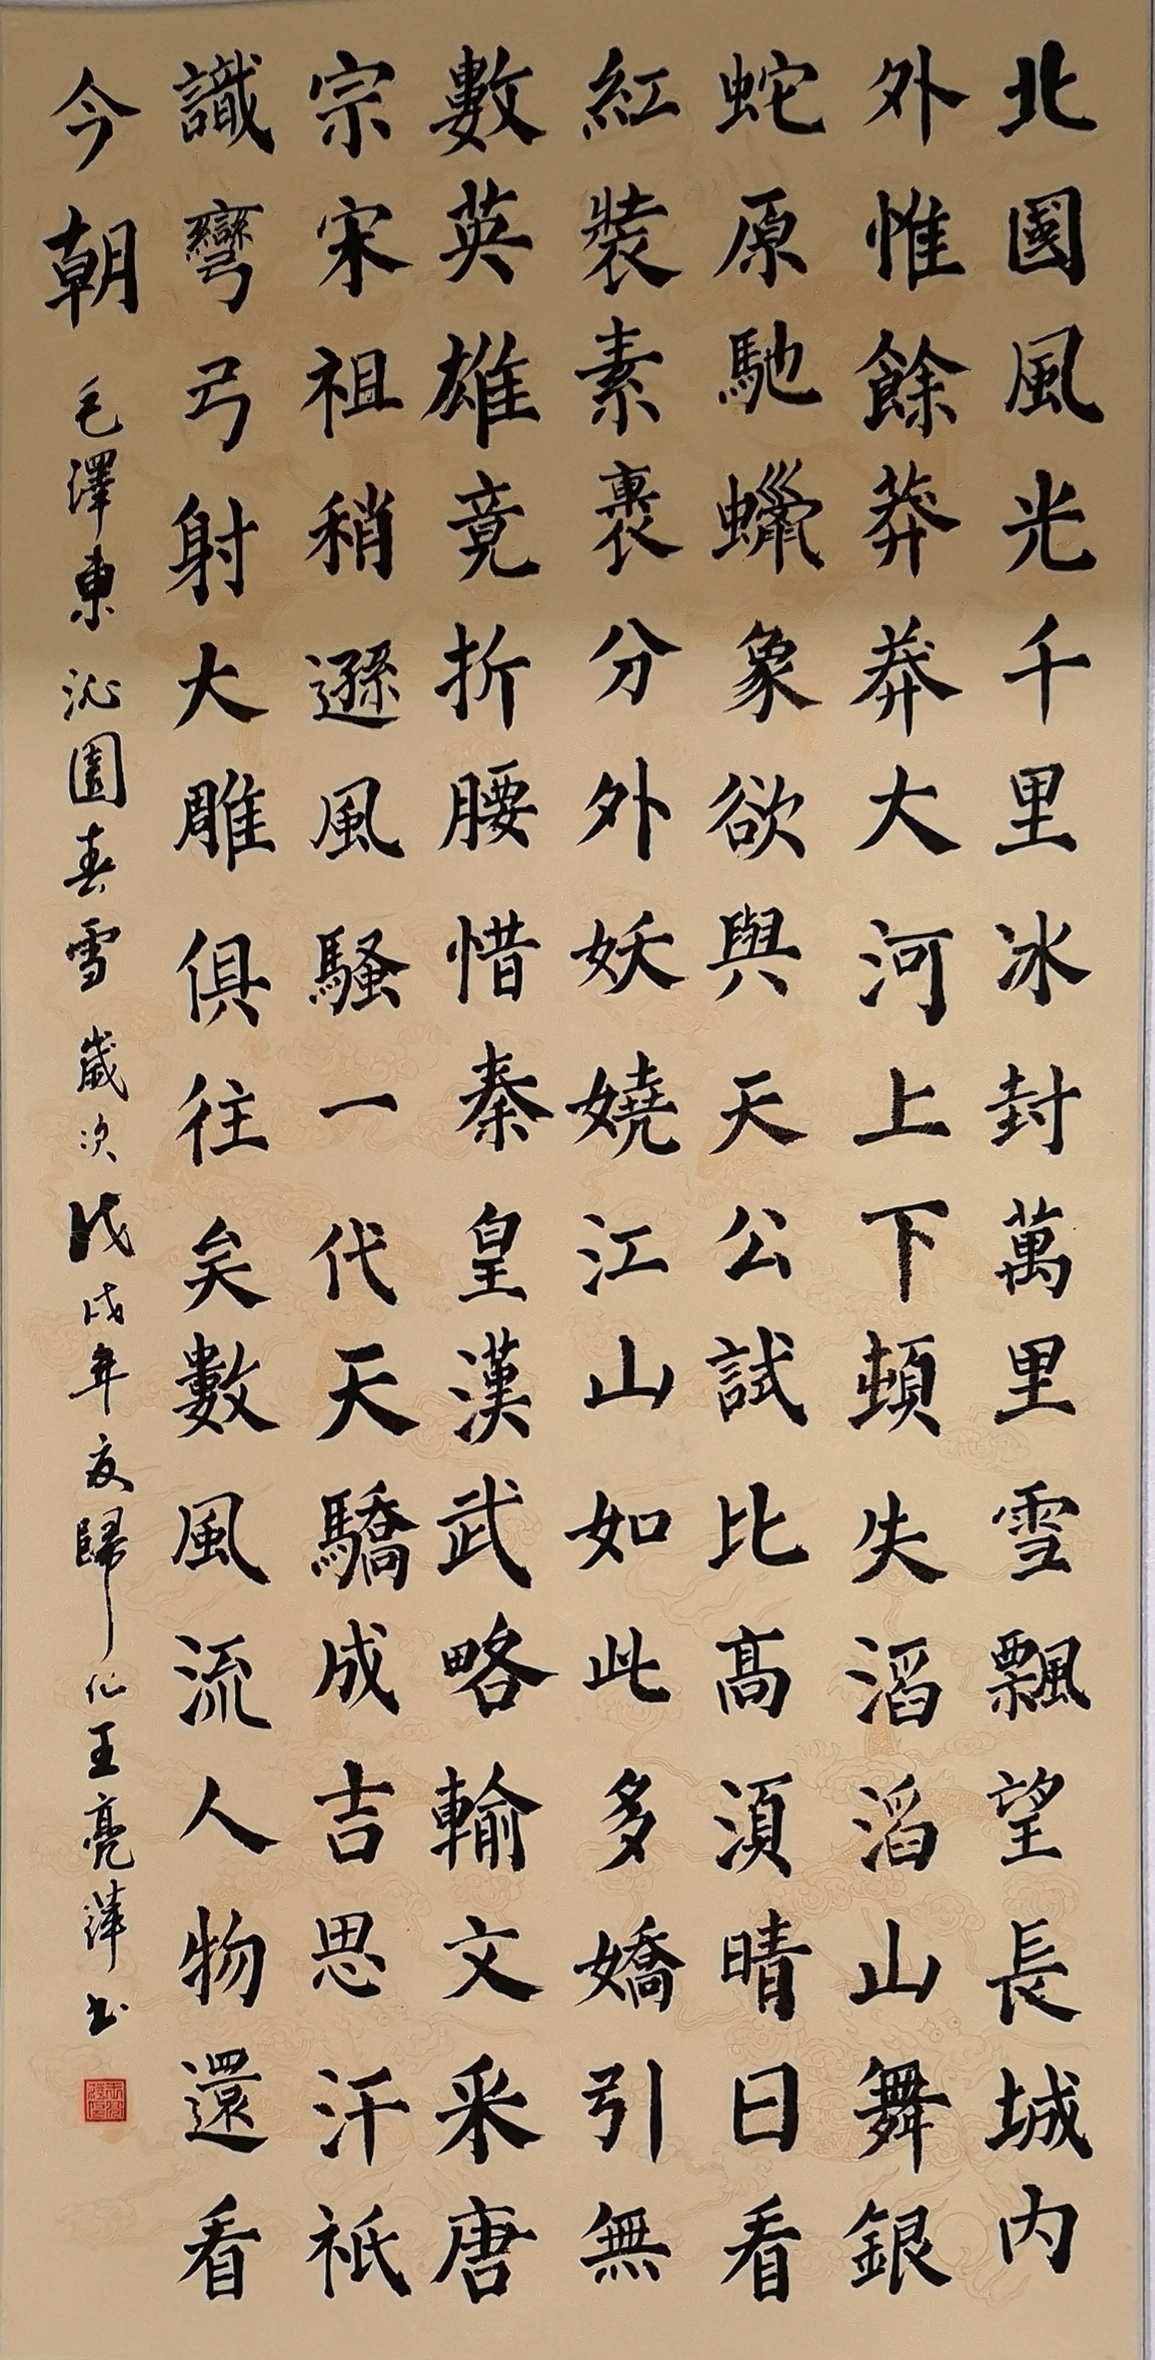 北國風光千里冰封萬里雪飄望長城内
外惟餘莽莽大河上下頓失滔滔山舞銀
蛇原馳蠟象欲與天公試比高須晴日看
紅裝素裹分外妖嬈江山如此多嬌引無
數英雄竟折腰惜秦皇漢武略輸文采唐
宗宋祖稍遜風騷一代天驕成吉思汗祇
識彎弓射大雕俱往矣數風流人物還看
今朝 毛澤東沁園春雪 歲次戊戌年夏歸仁王亮萍书